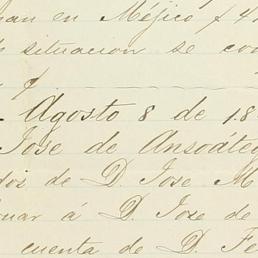 man en Méjico
situacion se
Agosto 8 de 18
Jose de Ansoáteg
de D. Jose M
á D. Jose de
cuenta de D. Fe